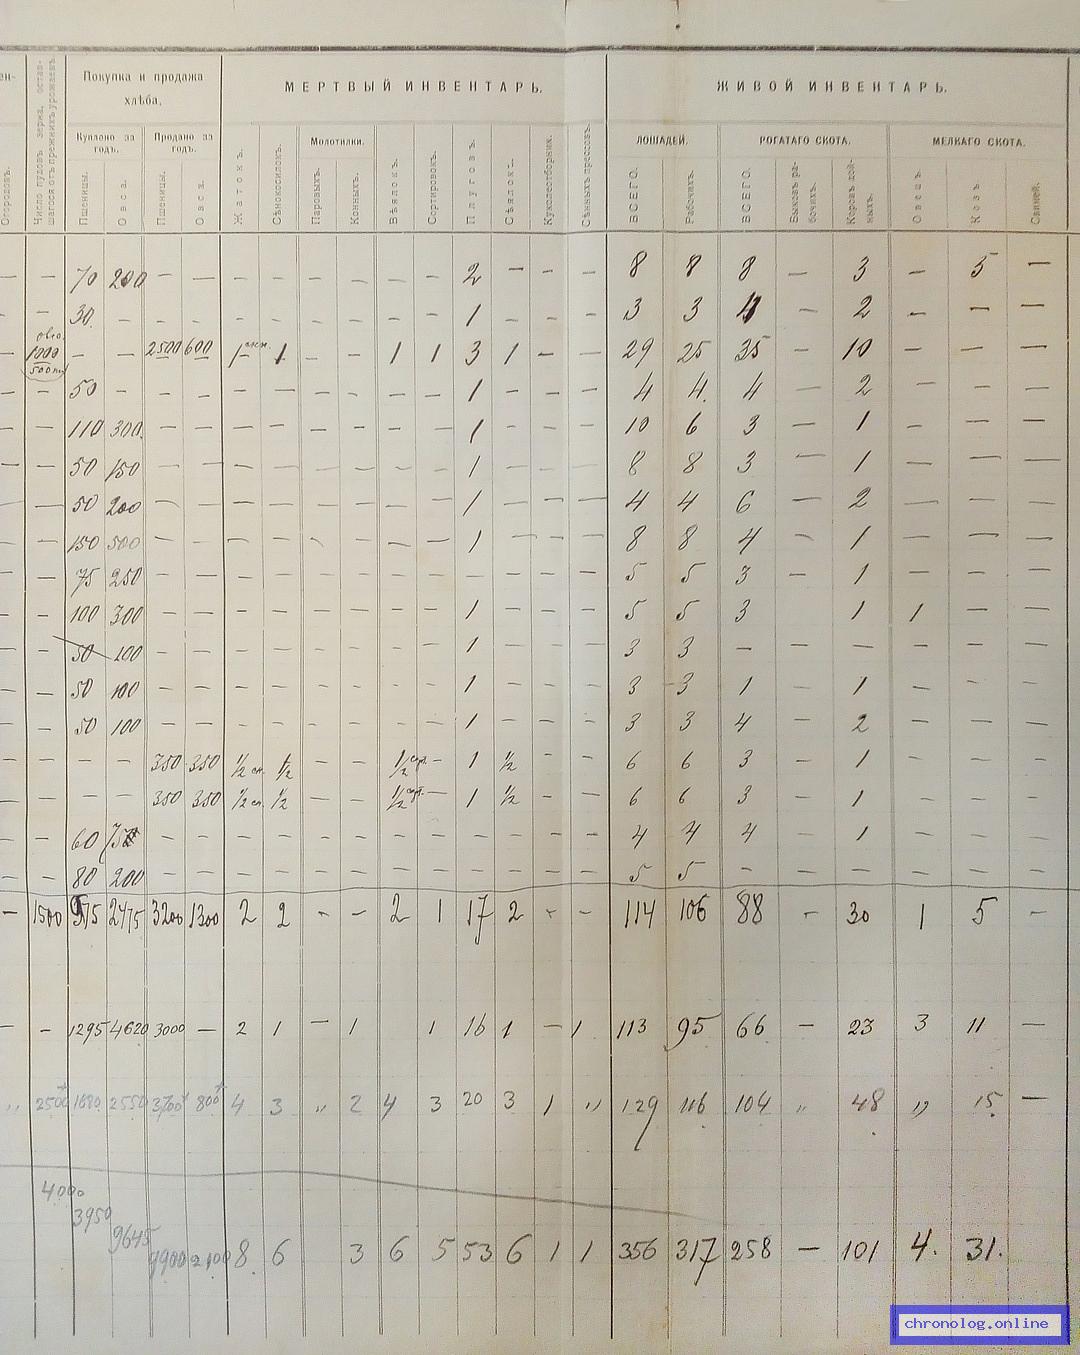 ен-
Огородовъ.
Число пудовъ зерна, остав-
шагося отъ прежнихъ урожаевъ
Покупка и продажа
хлѣба.
МЕРТВЫЙ ИНВЕНТАРЬ.
ЖИВОЙ ИНВЕНТАРЬ.
Куплено за
годъ.
Продано за
годъ.
Молотилки.
ЛОШАДЕЙ.
РОГАТАГО СКОТА.
МЕЛКАГО СКОТА.
Пшеницы.
Овса.
Пшеницы.
Овса.
Жатокъ.
Сѣнокосилокъ.
Паровыхъ.
Конныхъ.
Вѣялокъ.
Сортировокъ.
Плуговъ.
Сѣялокъ.
Куколеотборник.
Сѣнныхъ прессовъ.
ВСЕГО.
Рабочихъ.
ВСЕГО.
Быковъ ра-
бочихъ.
Коровъ дой-
ныхъ.
Овецъ.
Козъ
Свиней.
— — 70 200 — — — — — — — — 2 — — — 8 8 8 — 3 — 5 —
— — 30 — — — — — — — — — 1 — — — 3 3 4 — 2 — — —
— 1000 — — 2500 600 1 1 — — 1 1 3 1 — — 29 25 35 — 10 — — —
500
— — 50 — — — — — — — — — 1 — — — 4 4. 4 — 2 — — —
— — 110 300. — — — — — — — — 1 — — — 10 6 3 — 1 — — —
— — 50 150 — — — — — — — — 1 — — — 8 8 3 — 1 — — —
— — 50 200 — — — — — — — — 1 — — — 4 4 6 — 2 — — —
— — 150 500 — — — — — — — — 1 — — — 8 8 4 — 1 — — —
— — 75 250 — — — — — — — — — — — — 5 5 3 — 1 — — —
— — 100 300 — — — — — — — — 1 — — — 5 5 3 1 1 — —
— — 50 100 — — — — — — — — 1 — — — 3 3 — — — — — —
— — 50 100 — — — — — — — — 1 — — — 3 3 1 — 1 — — —
— — 50 100 — — — — — — — — 1 — — — 3 3 4 — 2 — — —
— — — — 350 350 1/2 1/2 — — 1/2 — 1 1/2 — — 6 6 3 — 1 — — —
— — — — 350 350 1/2 1/2 — — 1/2 — 1 1/2 — — 6 6 3 — 1 — — —
— — 60 — — — — — — — — — — — — 4 4 4 — 1 — — —
— — 80 200 — — — — — — — — — — — — 5 5 — — — — — —
— 1500 975 2475 3200 1300 2 2 — — 2 1 17 2 — — 114 106 88 — 30 1 5 —
— — 1295 4620 3000 — 2 1 — 1 1 16 1 — 1 113 95 66 — 23 3 11 —
„ 2500+ 1680 2550 3700+ 800+ 4 3 „ 2 4 3 20 3 1 „ 129 116 104 „ 48 „ 15 —
4000
3950
9645
9900 2100 8 6 3 6 5 53 6 1 1 356 317 258 — 101 4. 31.
chronolog.online